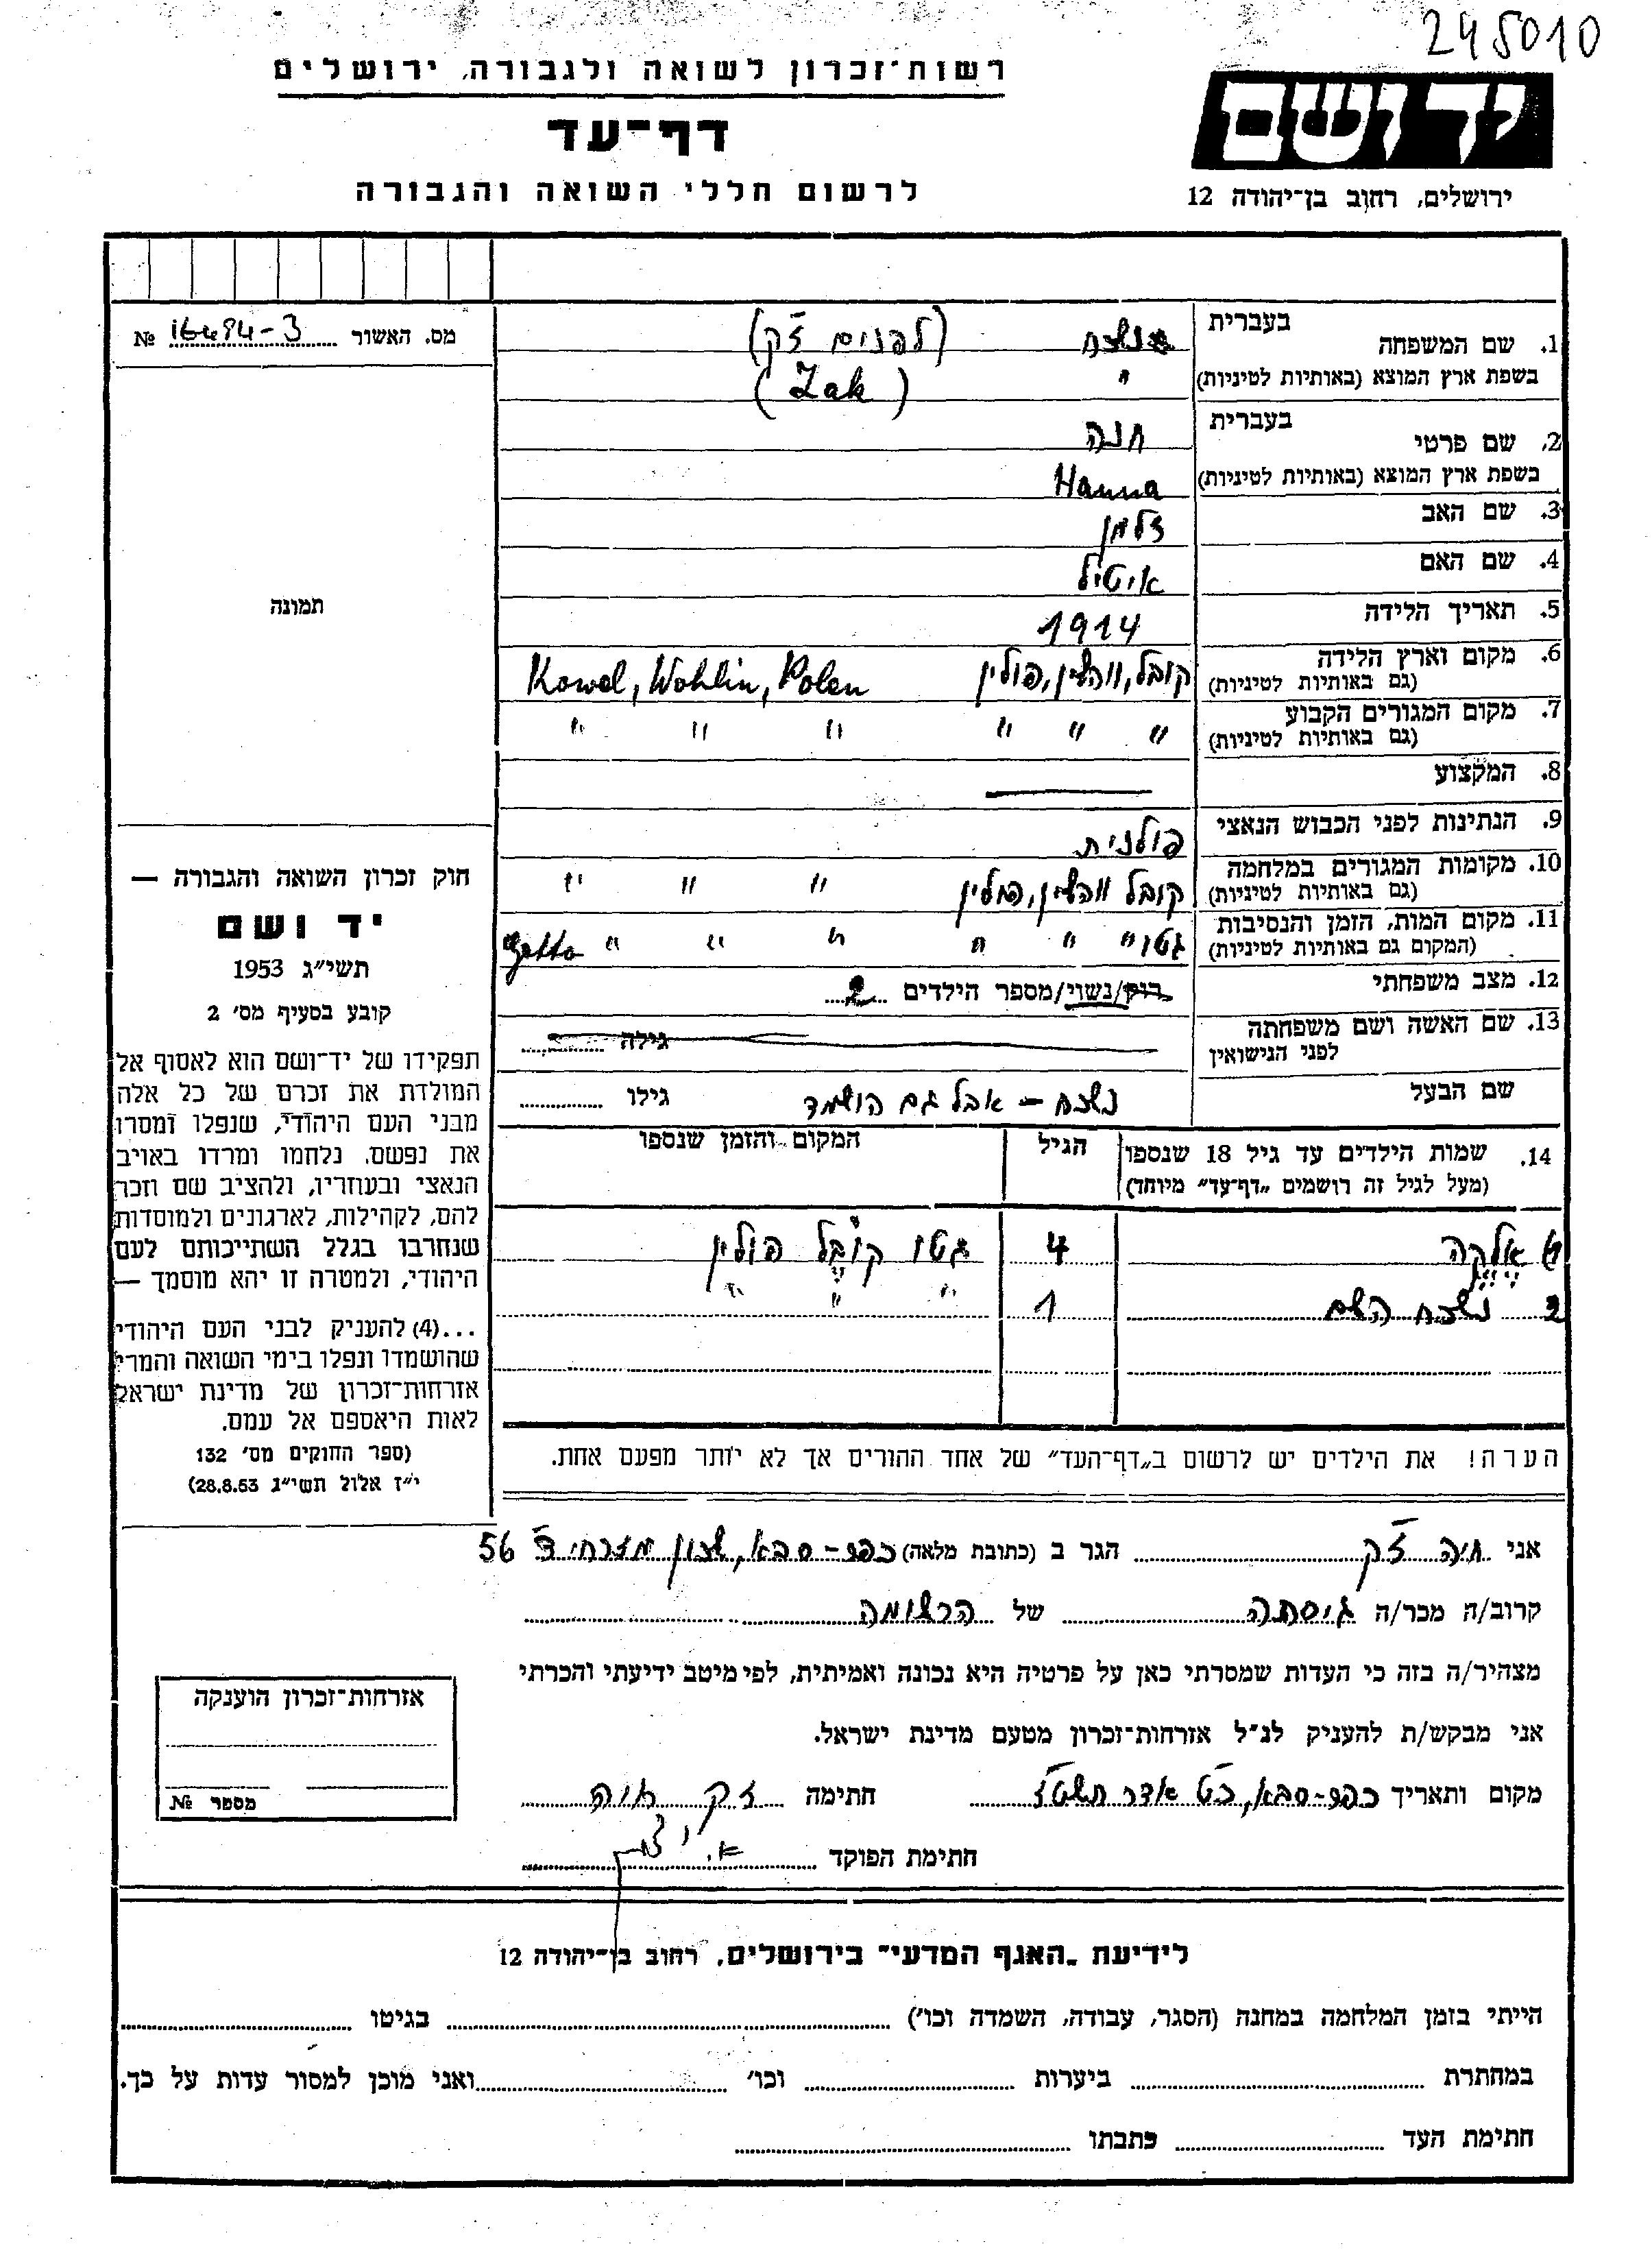 245010
רשות־זכרון לשואה ולגבורה, ירושלים
דף־עד
לרשום חללי השואה והגבורה
יד ושם
ירושלים, רחוב בן־יהודה 12
מס. האשור 16494-3 №
תמונה
1. שם המשפחה בעברית נשכח (לפנים זק)
בשפת ארץ המוצא (באותיות לטיניות) " (Zak)
2. שם פרטי בעברית חנה
בשפת ארץ המוצא (באותיות לטיניות) Hanna
3. שם האב זלמן
4. שם האם איטיל
5. תאריך הלידה 1914
6. מקום וארץ הלידה (גם באותיות לטיניות) קובל, ווהלין, פולין Kowel, Wohlin, Polen
7. מקום המגורים הקבוע (גם באותיות לטיניות) " " " " " "
8. המקצוע —
9. הנתינות לפני הכבוש הנאצי פולנית
10. מקומות המגורים במלחמה (גם באותיות לטיניות) קובל ווהלין, פולין " " "
11. מקום המות, הזמן והנסיבות (המקום גם באותיות לטיניות) גטו " " " " " " Getto
12. מצב משפחתי רווק/נשוי/מספר הילדים 2
13. שם האשה ושם משפחתה לפני הנישואין גילה
שם הבעל נשכח – אבל גם הושמד גילו
14. שמות הילדים עד גיל 18 שנספו (מעל לגיל זה רושמים „דף־עד" מיוחד) הגיל המקום והזמן שנספו
אלקה 4 גטו קובל פולין
2 נשכח השם 1 " " "
הערה! את הילדים יש לרשום ב„דף־העד" של אחד ההורים אך לא יותר מפעם אחת.
חוק זכרון השואה והגבורה —
יד ושם
תשי"ג 1953
קובע בסעיף מס׳ 2
תפקידו של יד־ושם הוא לאסוף אל
המולדת את זכרם של כל אלה
מבני העם היהודי, שנפלו ומסרו
את נפשם, נלחמו ומרדו באויב
הנאצי ובעוזריו, ולהציב שם וזכר
להם, לקהילות, לארגונים ולמוסדות
שנחרבו בגלל השתייכותם לעם
היהודי, ולמטרה זו יהא מוסמך —
...(4) להעניק לבני העם היהודי
שהושמדו ונפלו בימי השואה והמרי
אזרחות־זכרון של מדינת ישראל
לאות היאספם אל עמם.
(ספר החוקים מס׳ 132
י"ז אלול תשי"ג 28.8.53)
אני חיה זק הגר ב (כתובת מלאה) כפר-סבא, שכון מזרחי ד 56
קרוב/ה מכר/ה גיסתה של הרשומה
מצהיר/ה בזה כי העדות שמסרתי כאן על פרטיה היא נכונה ואמיתית, לפי מיטב ידיעתי והכרתי
אני מבקש/ת להעניק לנ"ל אזרחות־זכרון מטעם מדינת ישראל.
מקום ותאריך כפר-סבא, כט אדר תשט"ז חתימה זק חיה
חתימת הפוקד
אזרחות־זכרון הוענקה
מספר №
לידיעת „האגף המדעי" בירושלים, רחוב בן־יהודה 12
הייתי בזמן המלחמה במחנה (הסגר, עבודה, השמדה וכו׳) בגיטו
במחתרת ביערות וכו׳ ואני מוכן למסור עדות על כך.
חתימת העד כתבתו